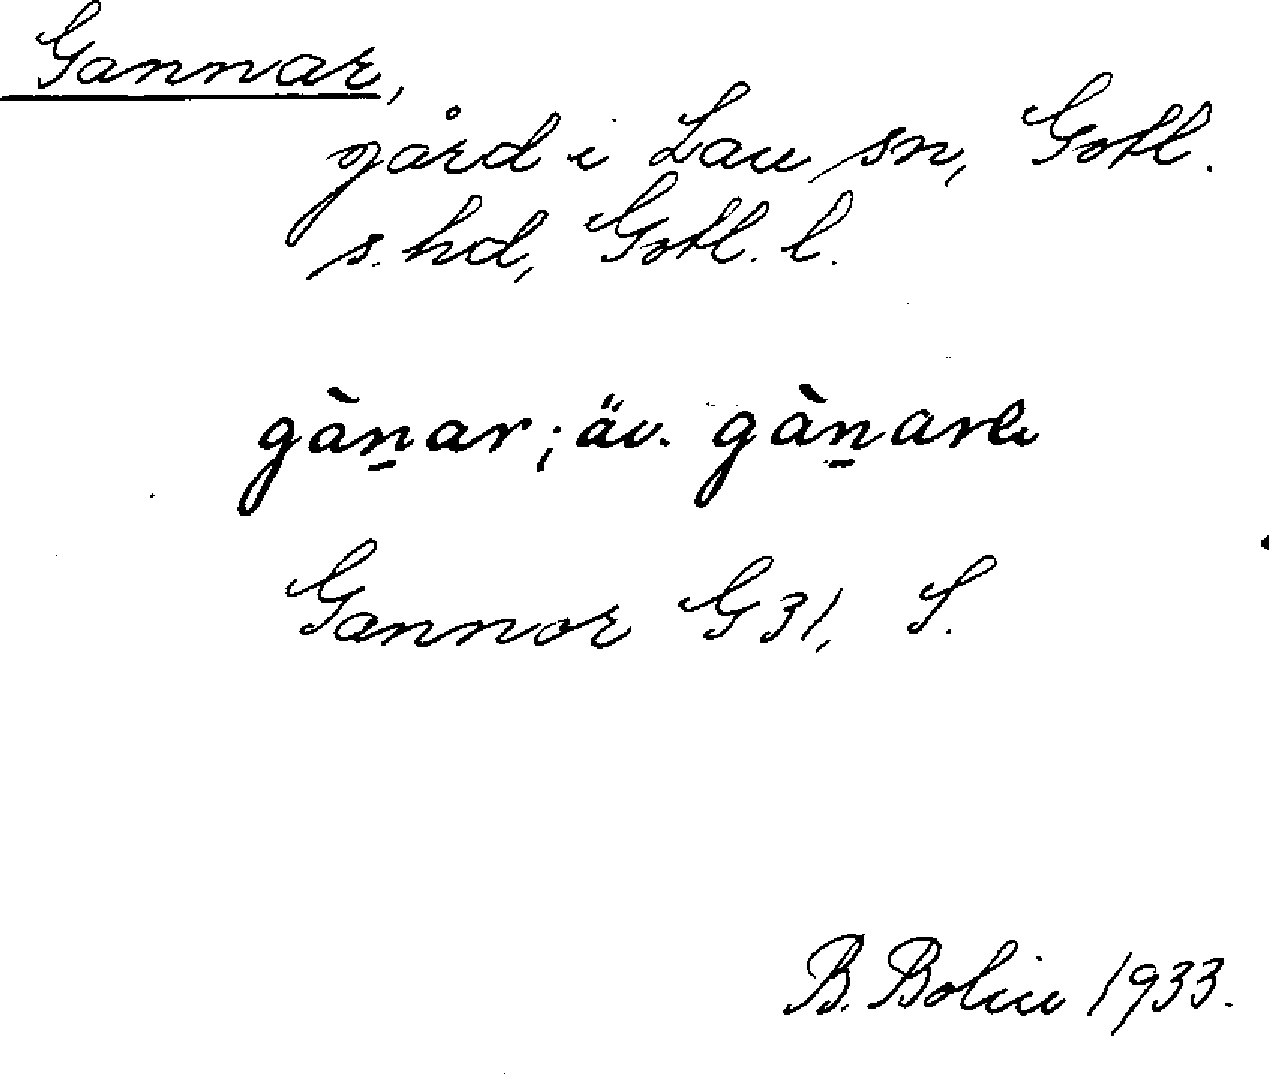 Gannar,
gård i Lau sn, Gotl.
s. hd, Gotl. l.
gàn̠ar; äv. gàn̠arɩ
Gannor G31, S.
B. Bolin 1933.